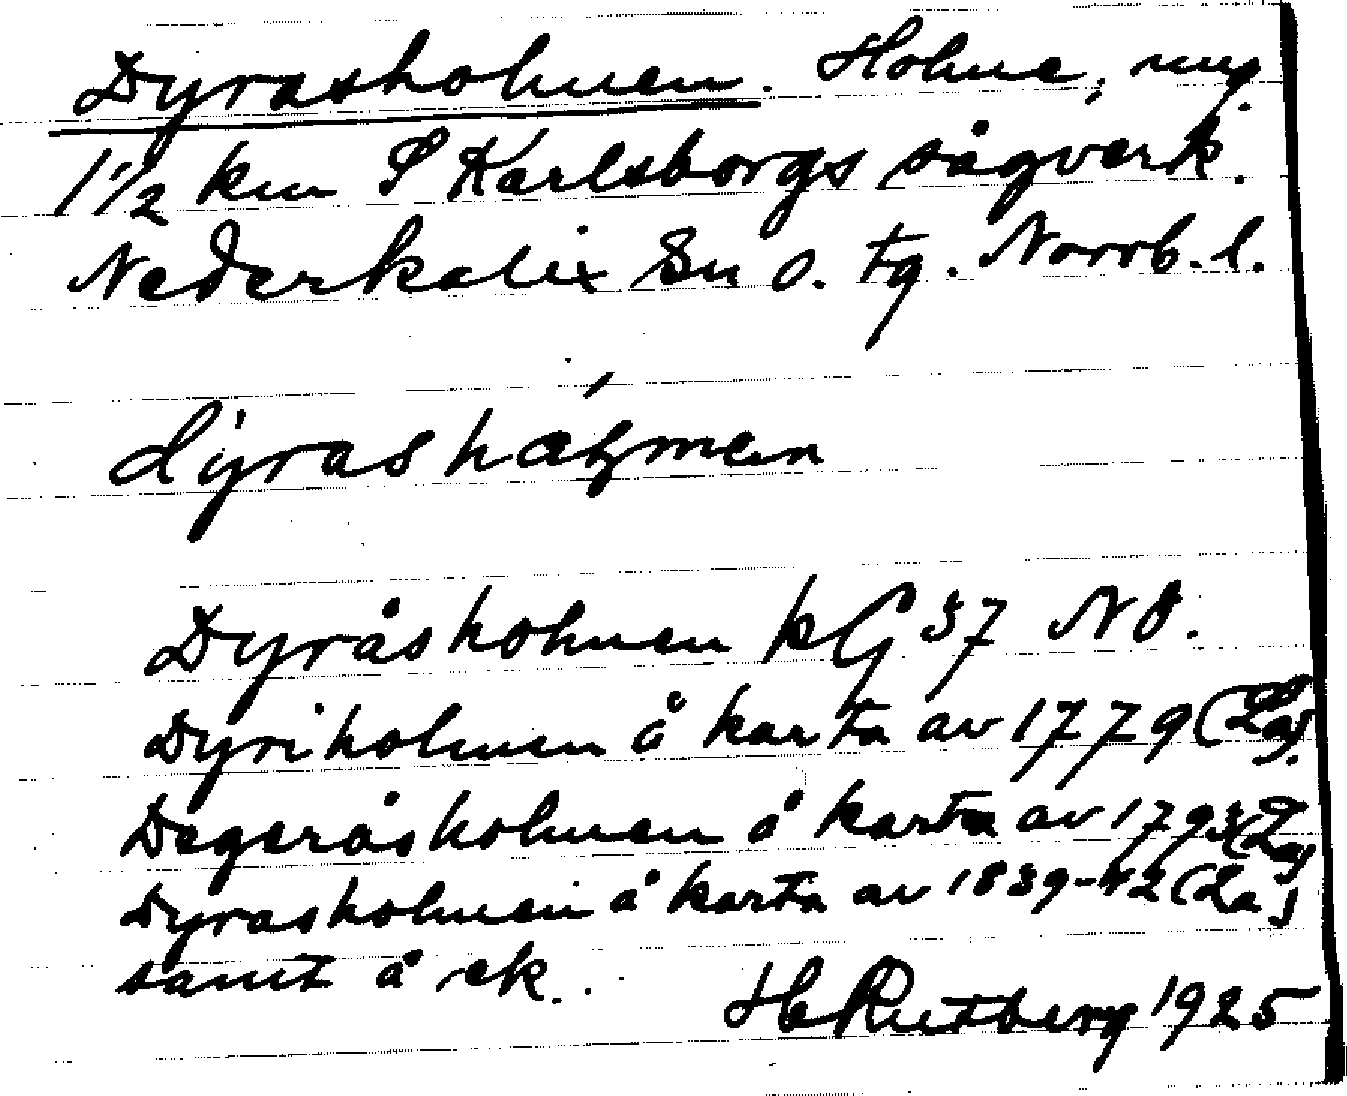 Dyrasholmen. Holme, my.
1 1/2 km S Karlsborgs sågverk.
Nederkalix Sn o. tg. Norrb. l.
dýrashálmen
Dyråsholmen kG 37 NO.
Dyriholmen å karta av 1779 (La).
Degeråsholmen å karta av 1793 (La)
Dyrasholmen å karta av 1839-42 (La)
samt å ek.
H Rutberg 1925